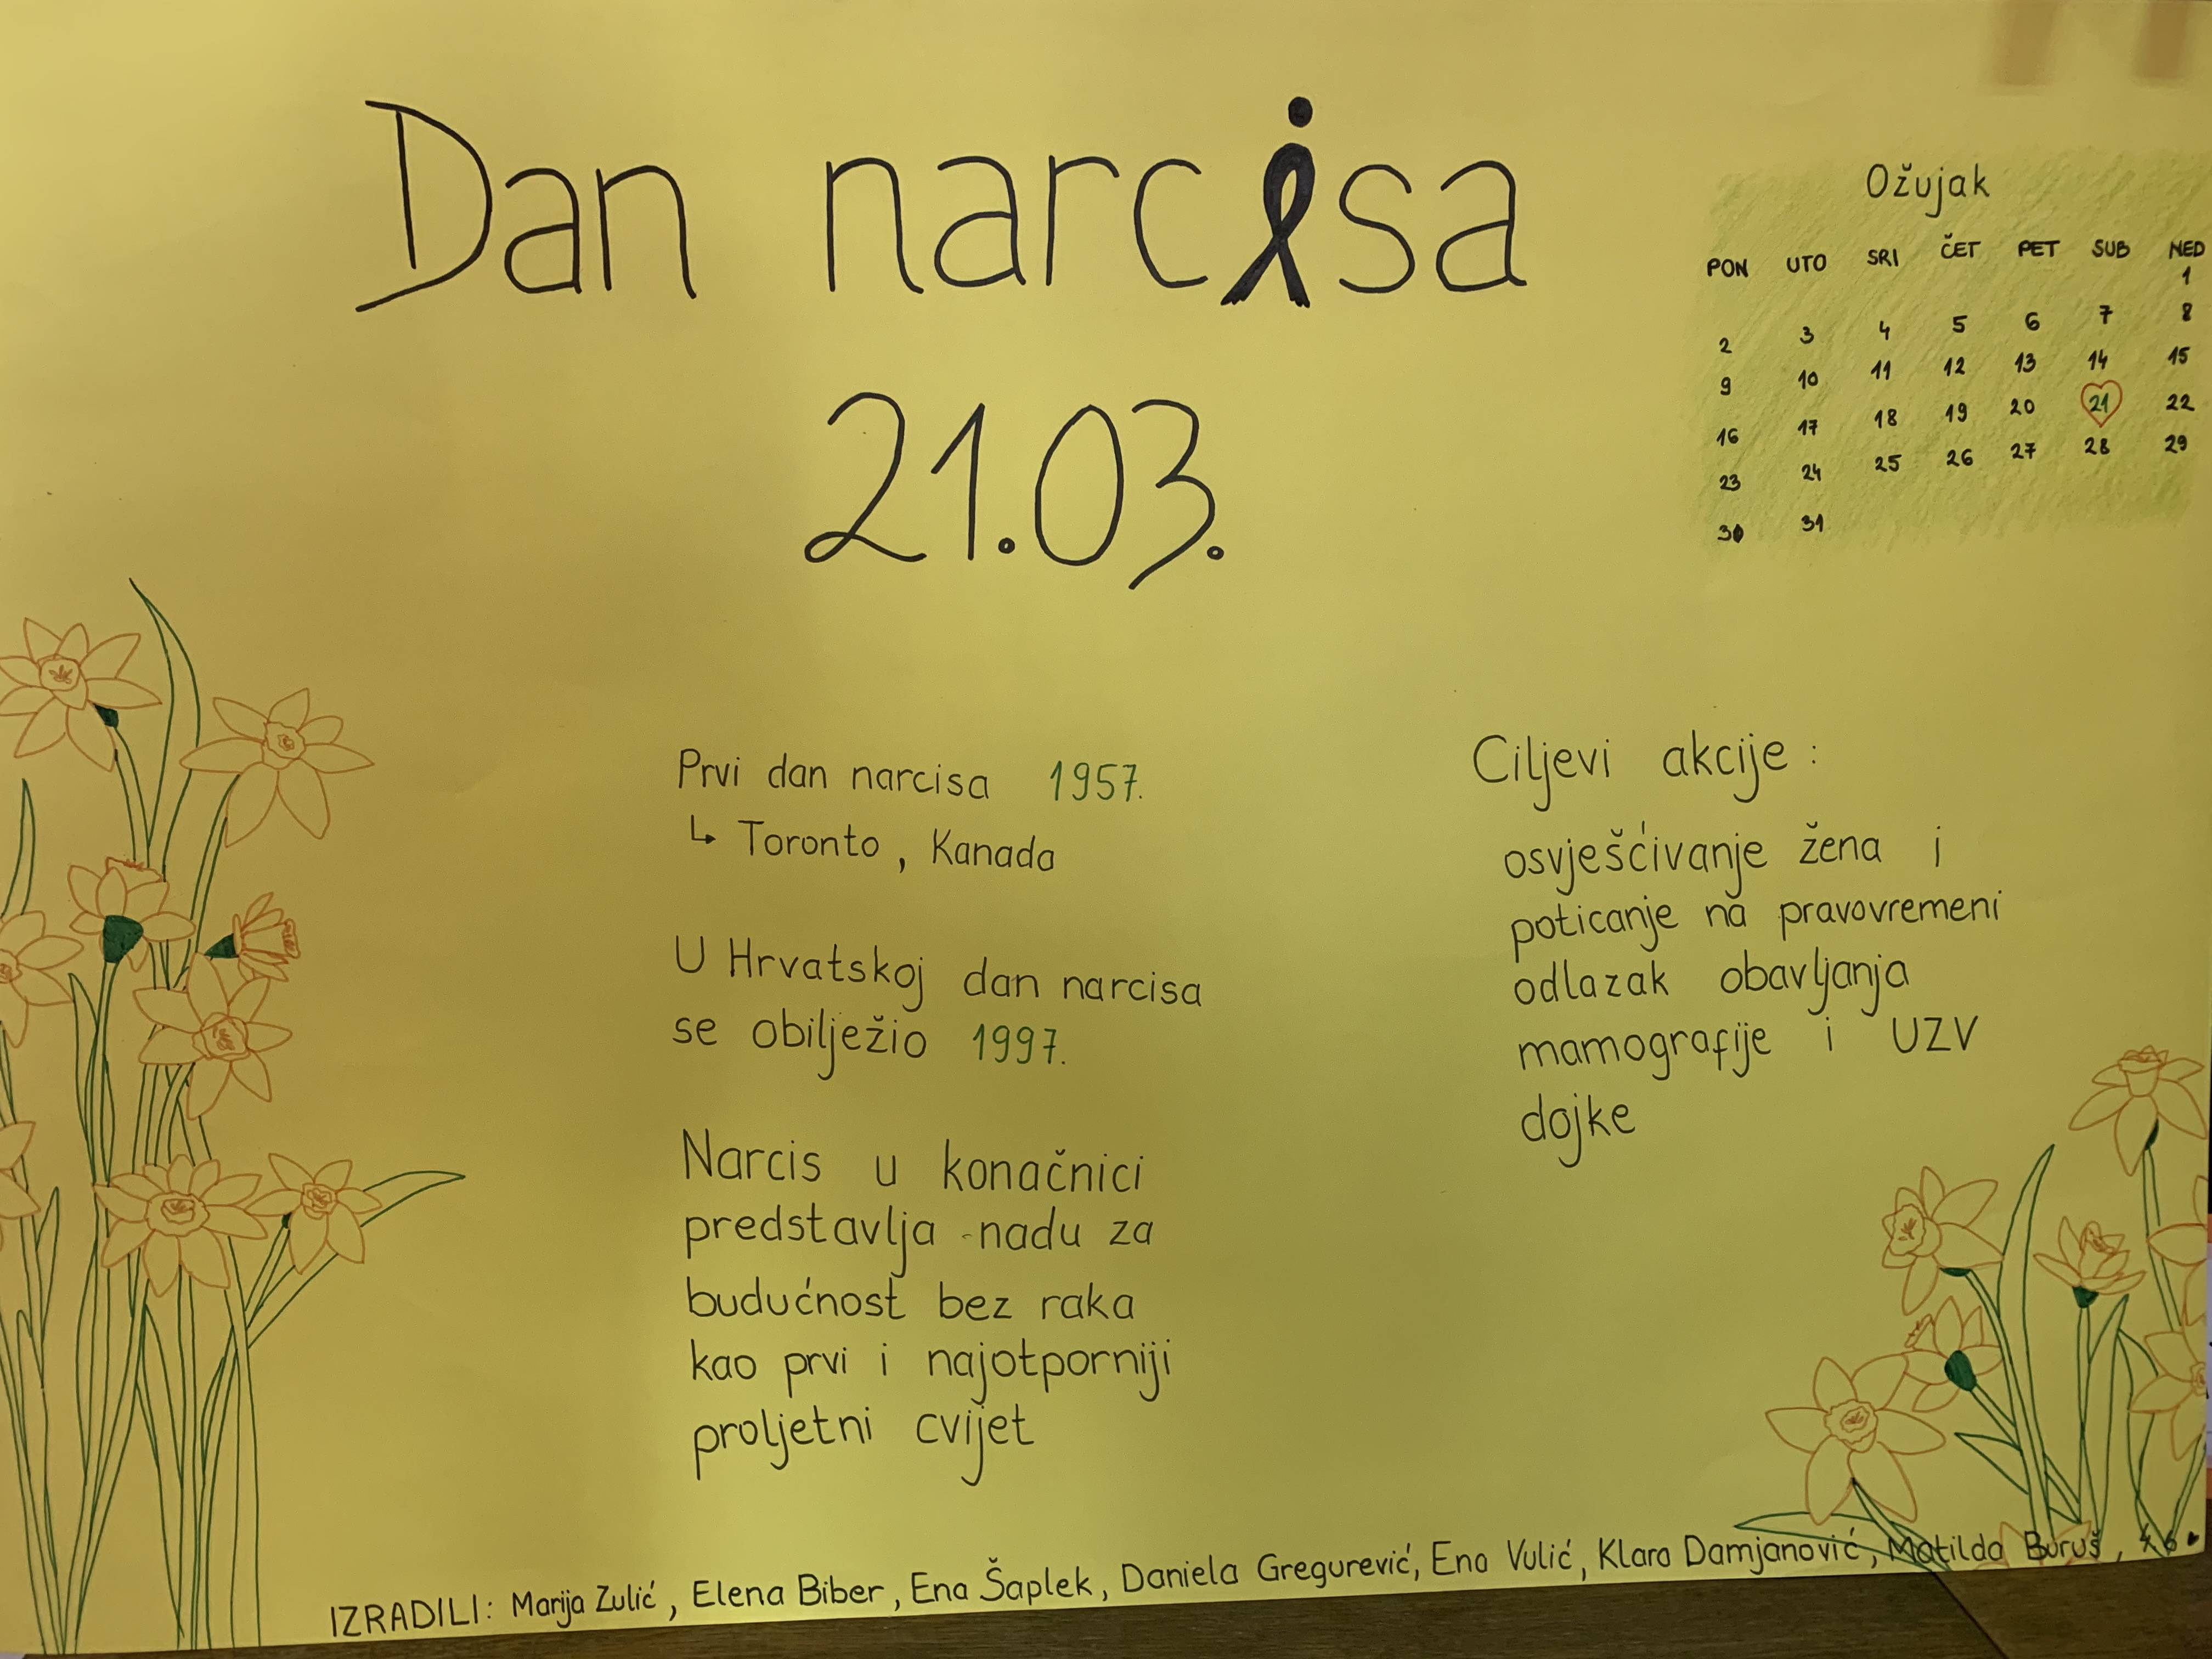 Dan narcisa
21.03.
Ožujak
PON UTO SRI ČET PET SUB NED
1
2 3 4 5 6 7 8
9 10 11 12 13 14 15
16 17 18 19 20 21 22
23 24 25 26 27 28 29
30 31
Prvi dan narcisa 1957.
↳ Toronto, Kanada
U Hrvatskoj dan narcisa
se obilježio 1997.
Narcis u konačnici
predstavlja nadu za
budućnost bez raka
kao prvi i najotporniji
proljetni cvijet
Ciljevi akcije:
osvješćivanje žena i
poticanje na pravovremeni
odlazak obavljanja
mamografije i UZV
dojke
IZRADILI: Marija Zulić, Elena Biber, Ena Šaplek, Daniela Gregurević, Ena Vulić, Klara Damjanović, Matilda Buruš,